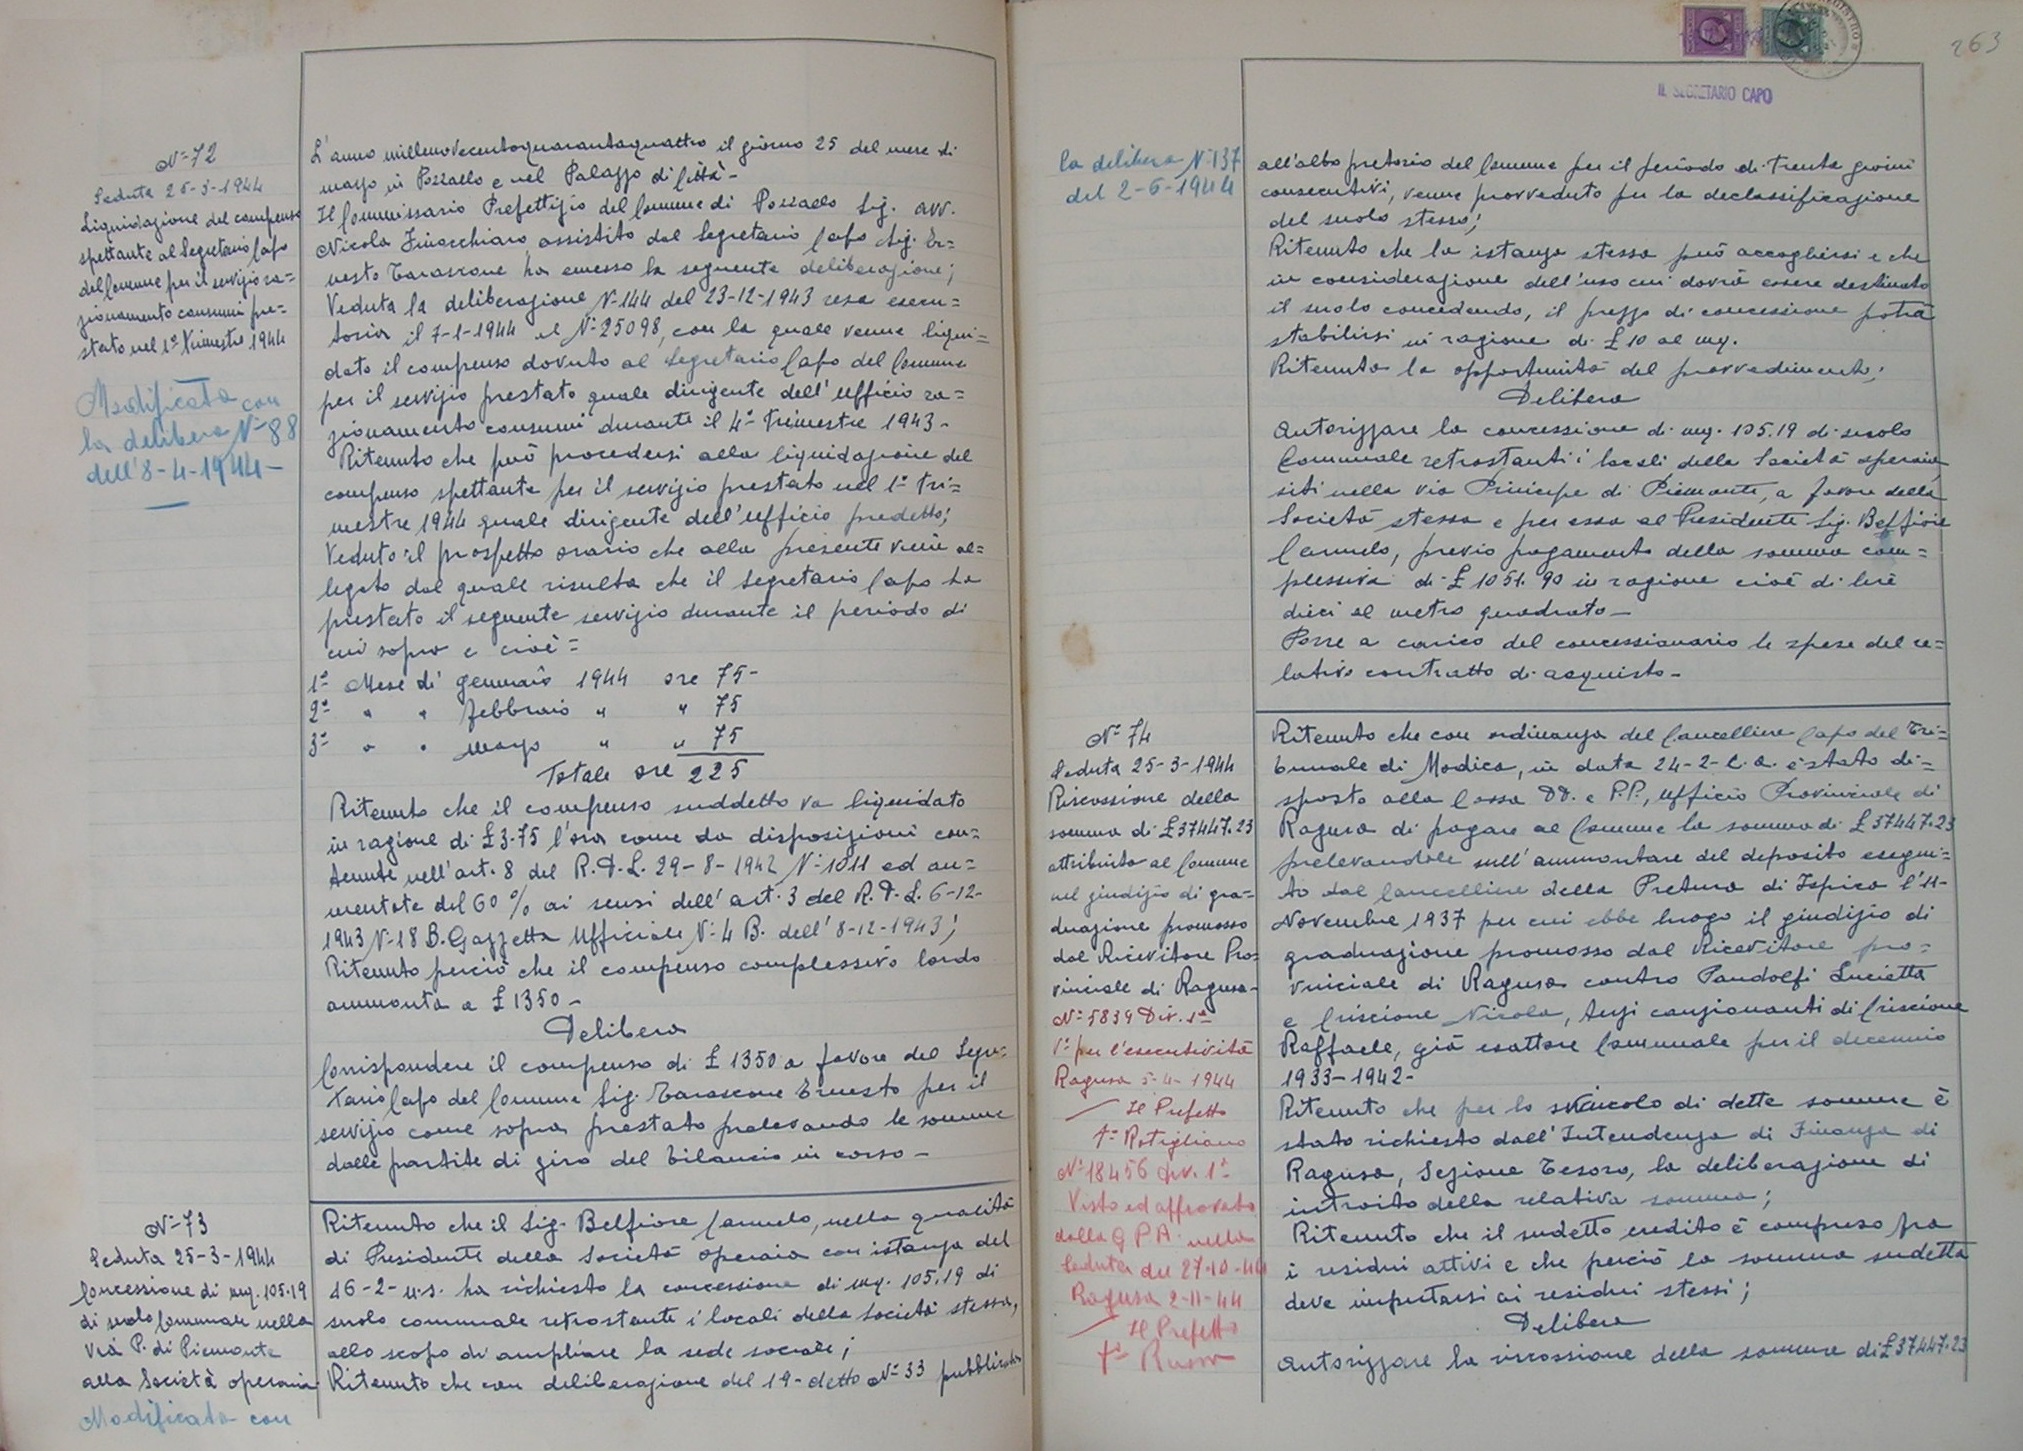 N° 72
Seduta 25-3-1944
Liquidazione del compenso
spettante al Segretario Capo
del Comune per il servizio ra=
zionamento consumi pre=
stato nel 1° Trimestre 1944
Modificata con
la delibera N° 88
dell'8-4-1944-
L'anno millenovecentoquarantaquattro il giorno 25 del mese di
marzo in Pozzallo e nel Palazzo di Città-
Il Commissario Prefettizio del Comune di Pozzallo Sig. avv.
Nicola Finocchiaro assistito dal Segretario Capo Sig. Er=
nesto Tarascone ha emesso la seguente deliberazione;
Veduta la deliberazione N° 144 del 23-12-1943 resa esecu=
toria il 7-1-1944 al N° 25098, con la quale venne liqui=
dato il compenso dovuto al Segretario Capo del Comune
per il servizio prestato quale dirigente dell'ufficio ra=
zionamento consumi durante il 4° Trimestre 1943-
Ritenuto che può procedersi alla liquidazione del
compenso spettante per il servizio prestato nel 1° Tri=
mestre 1944 quale dirigente dell'ufficio predetto;
Veduto il prospetto orario che alla presente viene al=
legato dal quale risulta che il Segretario Capo ha
prestato il seguente servizio durante il periodo di
cui sopra e cioè=
1° Mese di gennaio 1944 ore 75-
2° " " febbraio " " 75
3° " " marzo " " 75
Totale ore 225
Ritenuto che il compenso suddetto va liquidato
in ragione di £ 3.75 l'ora come da disposizioni con=
tenute nell'art. 8 del R.D.L. 29-8-1942 N° 1011 ed au=
mentate del 60% ai sensi dell'art. 3 del R.D.L. 6-12-
1943 N° 18 B. Gazzetta Ufficiale N° 4 B. dell'8-12-1943;
Ritenuto perciò che il compenso complessivo lordo
ammonta a £ 1350-
Delibera
Corrispondere il compenso di £ 1350 a favore del Segre=
tario Capo del Comune Sig. Tarascone Ernesto per il
servizio come sopra prestato prelevando le somme
dalle partite di giro del bilancio in corso-
N° 73
Seduta 25-3-1944
Concessione di mq. 105.19
di suolo Comunale nella
Via P. di Piemonte
alla Società operaia
Modificata con
Ritenuto che il Sig. Belfiore Carmelo, nella qualità
di Presidente della Società operaia con istanza del
16-2-u.s. ha richiesto la concessione di mq. 105.19 di
suolo comunale retrostante i locali della Società stessa,
allo scopo di ampliare la sede sociale;
Ritenuto che con deliberazione del 19-detto N° 33 pubblicata
263
IL SEGRETARIO CAPO
la delibera N° 137
del 2-6-1944
all'albo pretorio del Comune per il periodo di trenta giorni
consecutivi, venne provveduto per la declassificazione
del suolo stesso;
Ritenuto che la istanza stessa può accogliersi e che
in considerazione dell'uso cui dovrà essere destinato
il suolo concedendo, il prezzo di concessione potrà
stabilirsi in ragione di £ 10 al mq.
Ritenuta la opportunità del provvedimento;
Delibera
Autorizzare la concessione di mq. 105.19 di suolo
Comunale retrostanti i locali della Società operaia,
siti nella via Principe di Piemonte, a favore della
Società stessa e per essa al Presidente Sig. Belfiore
Carmelo, previo pagamento della somma com=
plessiva di £ 1051.90 in ragione cioè di lire
dieci al metro quadrato-
Porre a carico del concessionario le spese del re=
lativo contratto di acquisto-
N° 74
Seduta 25-3-1944
Riscossione della
somma di £ 37447.23
attribuita al Comune
nel giudizio di gra=
duazione promosso
dal Ricevitore Pro=
vinciale di Ragusa-
N° 5839 Div. 1ª
V° per l'esecutività
Ragusa 5-4-1944
Il Prefetto
F° Rotigliano
N° 18456 Div. 1ª
Visto ed approvato
dalla G P A. nella
Seduta del 27-10-44
Ragusa 2-11-44
Il Prefetto
F°
Ritenuto che con ordinanza del Cancelliere Capo del Tri=
bunale di Modica, in data 24-2-c.a. è stato di=
sposto alla Cassa DD. e P.P., ufficio Provinciale di
Ragusa di pagare al Comune la somma di £ 37447.23
prelevandole sull'ammontare del deposito esegui=
to dal Cancelliere della Pretura di Ispica l'11-
Novembre 1937 per cui ebbe luogo il giudizio di
graduazione promosso dal Ricevitore pro=
vinciale di Ragusa contro Pandolfi Lucietta
e Criscione Nicola, terzi cauzionanti di Criscione
Raffaele, già esattore Comunale per il decennio
1933-1942-
Ritenuto che per lo svincolo di dette somme è
stato richiesto dall'Intendenza di Finanza di
Ragusa, Sezione Tesoro, la deliberazione di
introito della relativa somma;
Ritenuto che il sudetto credito è compreso fra
i residui attivi e che perciò la somma sudetta
deve imputarsi ai residui stessi;
Delibera
Autorizzare la riscossione della somma di £ 37447.23